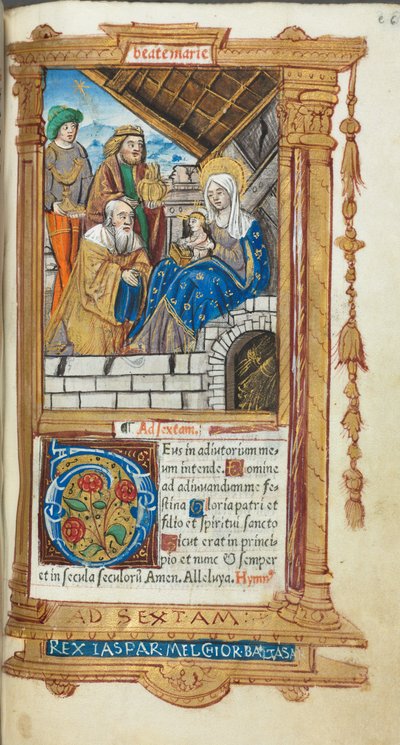 e 6
beate marie
¶ Ad sextam.
Deus in adiutorium me
um intende. Domine
ad adiuuandum me fe
stina Gloria patri et
filio et spiritui sancto
Sicut erat in princi
pio et nunc & semper
et in secula seculorū Amen. Alleluya. Hymnꝰ
AD SEXTAM:
REX IASPAR·MELCHIOR·BALTASA